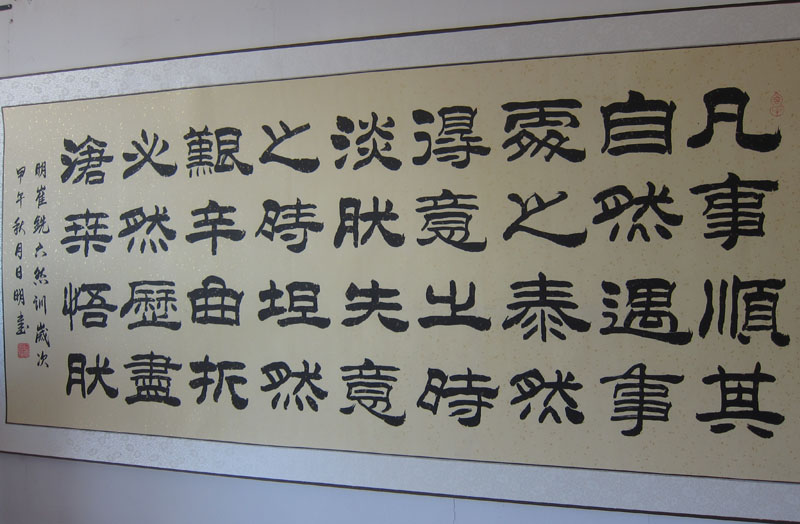 凡事順其
自然遇事
處之泰然
得意之時
淡肰失意
之時坦然
艱辛曲折
必然歷盡
滄桒悟肰
明崔銑六然训歲次
甲午秋月日明書